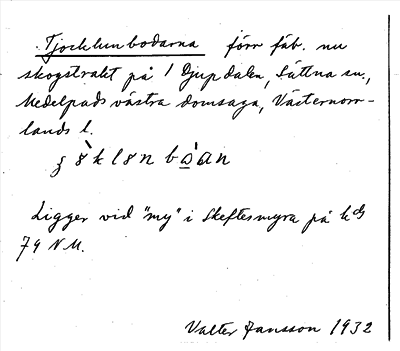 Tjocklunbodarna förr fäb. nu
skogstrakt på 1 Djupdalen, Sättna sn.,
Medelpads västra domsaga, Västernorr-
lands l.
Ligger vid "my" i Skeftesmyra på kds
74 NM.
Valter Jansson 1932